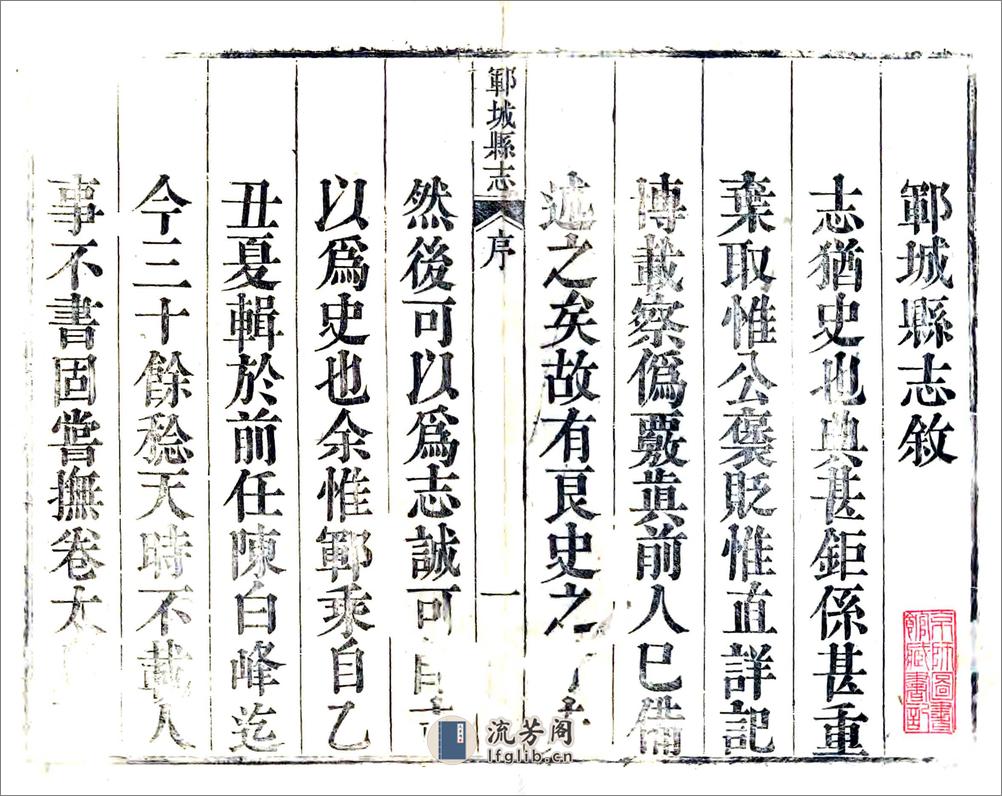 鄆城縣志敘
志猶史也典甚鉅係甚重
棄取惟公褒貶惟直詳記
博載察僞覈眞前人已備
述之矣故有良史之
鄆城縣志
序
一
然後可以爲志誠可
以爲史也余惟鄆乘自乙
丑夏輯於前任陳白峰迄
今三十餘稔天時不載人
事不書固嘗撫卷太
京師圖書
館藏書記
流芳阁
lfglib.cn